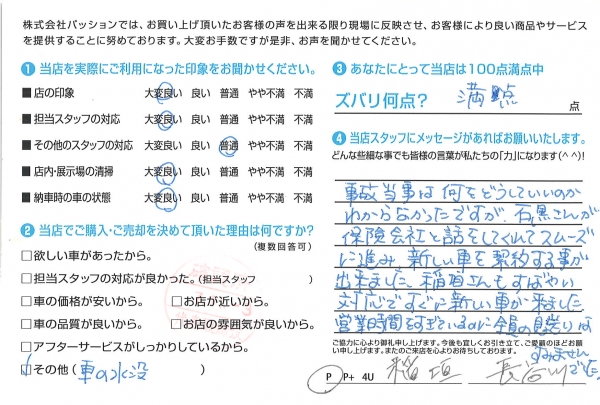 株式会社パッションでは、お買い上げ頂いたお客様の声を出来る限り現場に反映させ、お客様により良い商品やサービス
を提供することに努めております。大変お手数ですが是非、お声を聞かせてください。
① 当店を実際にご利用になった印象をお聞かせください。
■ 店の印象 大変良い 良い 普通 やや不満 不満
■ 担当スタッフの対応 大変良い 良い 普通 やや不満 不満
■ その他のスタッフの対応 大変良い 良い 普通 やや不満 不満
■ 店内・展示場の清掃 大変良い 良い 普通 やや不満 不満
■ 納車時の車の状態 大変良い 良い 普通 やや不満 不満
② 当店でご購入・ご売却を決めて頂いた理由は何ですか?
(複数回答可)
□欲しい車があったから。
□担当スタッフの対応が良かった。(担当スタッフ )
□車の価格が安いから。 □お店が近いから。
□車の品質が良いから。 □お店の雰囲気が良いから。
□アフターサービスがしっかりしているから。
□その他( 車の水没 )
③ あなたにとって当店は100点満点中
ズバリ何点? 満点 点
④ 当店スタッフにメッセージがあればお願いいたします。
どんな些細な事でも皆様の言葉が私たちの「力」になります(^^)!
事故当事は何をどうしていいのか
わからなかったですが、石黒さんが
保険会社と話をしてくれてスムーズ
に進み、新しい車を契約する事が
出来ました。稲垣さんもすばやい
対応ですぐに新しい車が来ました
営業時間をすぎているのに全員の見送りは
すみません
でした
ご協力に心より御礼申し上げます。今後も宜しくお引き立て、ご愛顧のほどお願い
申し上げます。またのご来店を心よりお待ちしております。
P P+ 4U 稲垣 長谷川